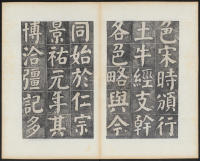 色宋時頒行
土牛經支幹
各色略與今
同始於仁宗
景祐元年其
博洽彊記多